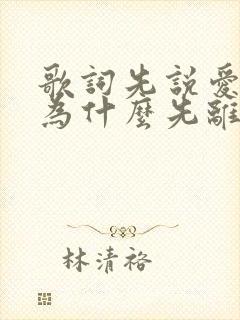 歌詞先説愛
為什麼先離
林清裕